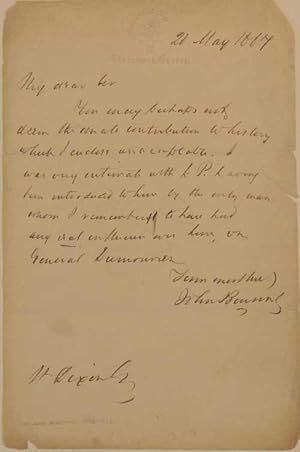 20 May 1867
My dear Sir
You may perhaps not
deem the small contribution to history
which I enclose unacceptable. I
was very intimate with L. P. having
been introduced to him by the only man
whom I remember to have had
any real influence over him, viz
General Dumouriez
Yours
John
W Dixon